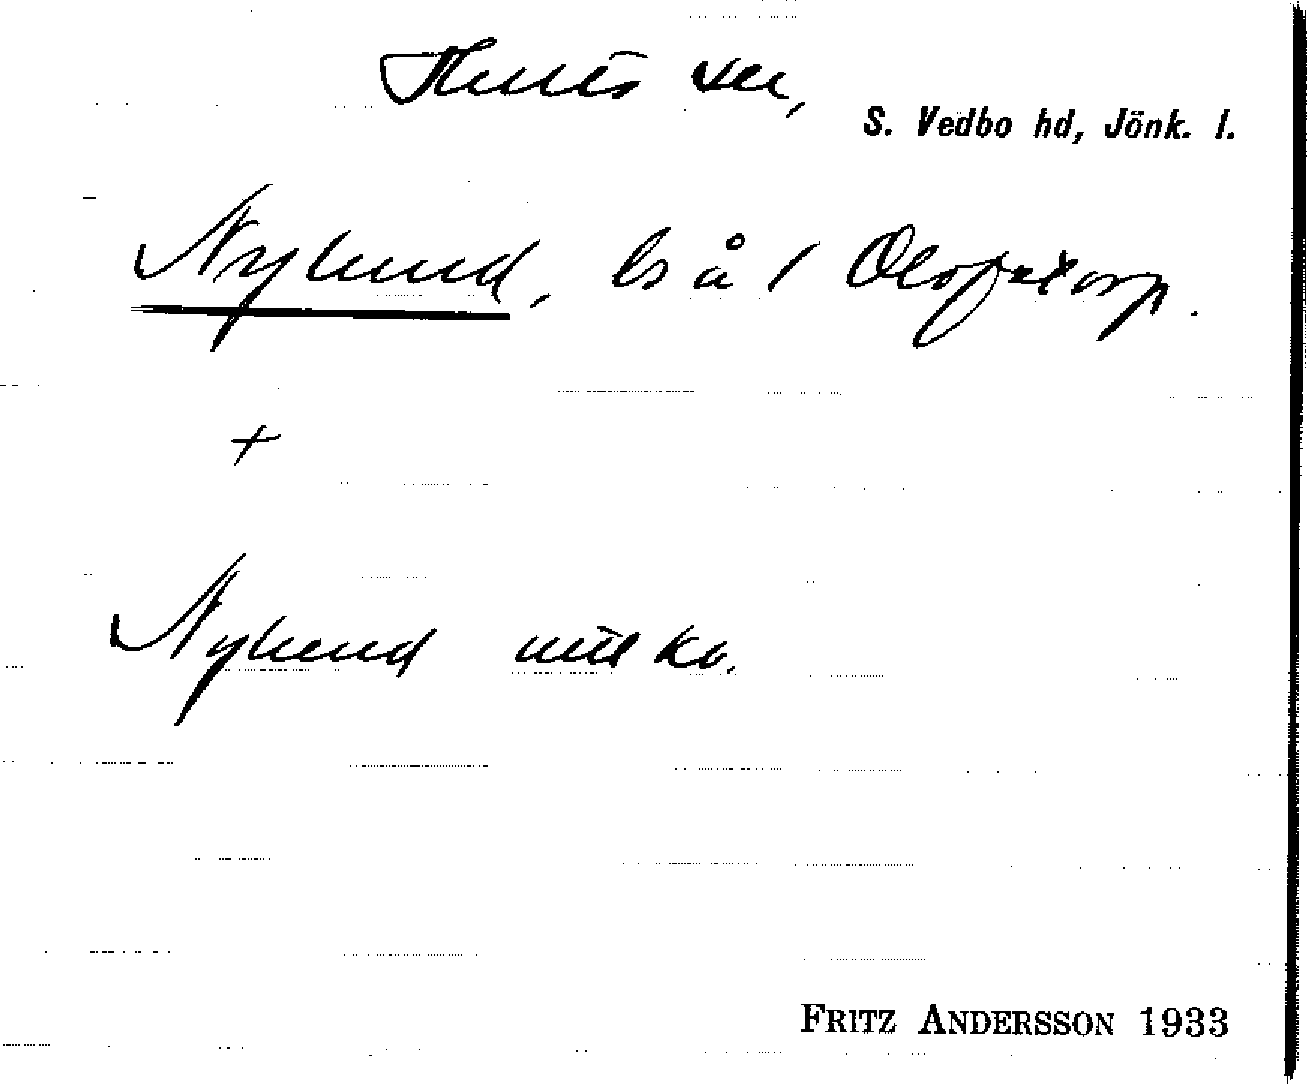 Hults sn,
S. Vedbo hd, Jönk. l.
Nylund, ls å / Olofstorp.
+
Nylund
FRITZ ANDERSSON 1933